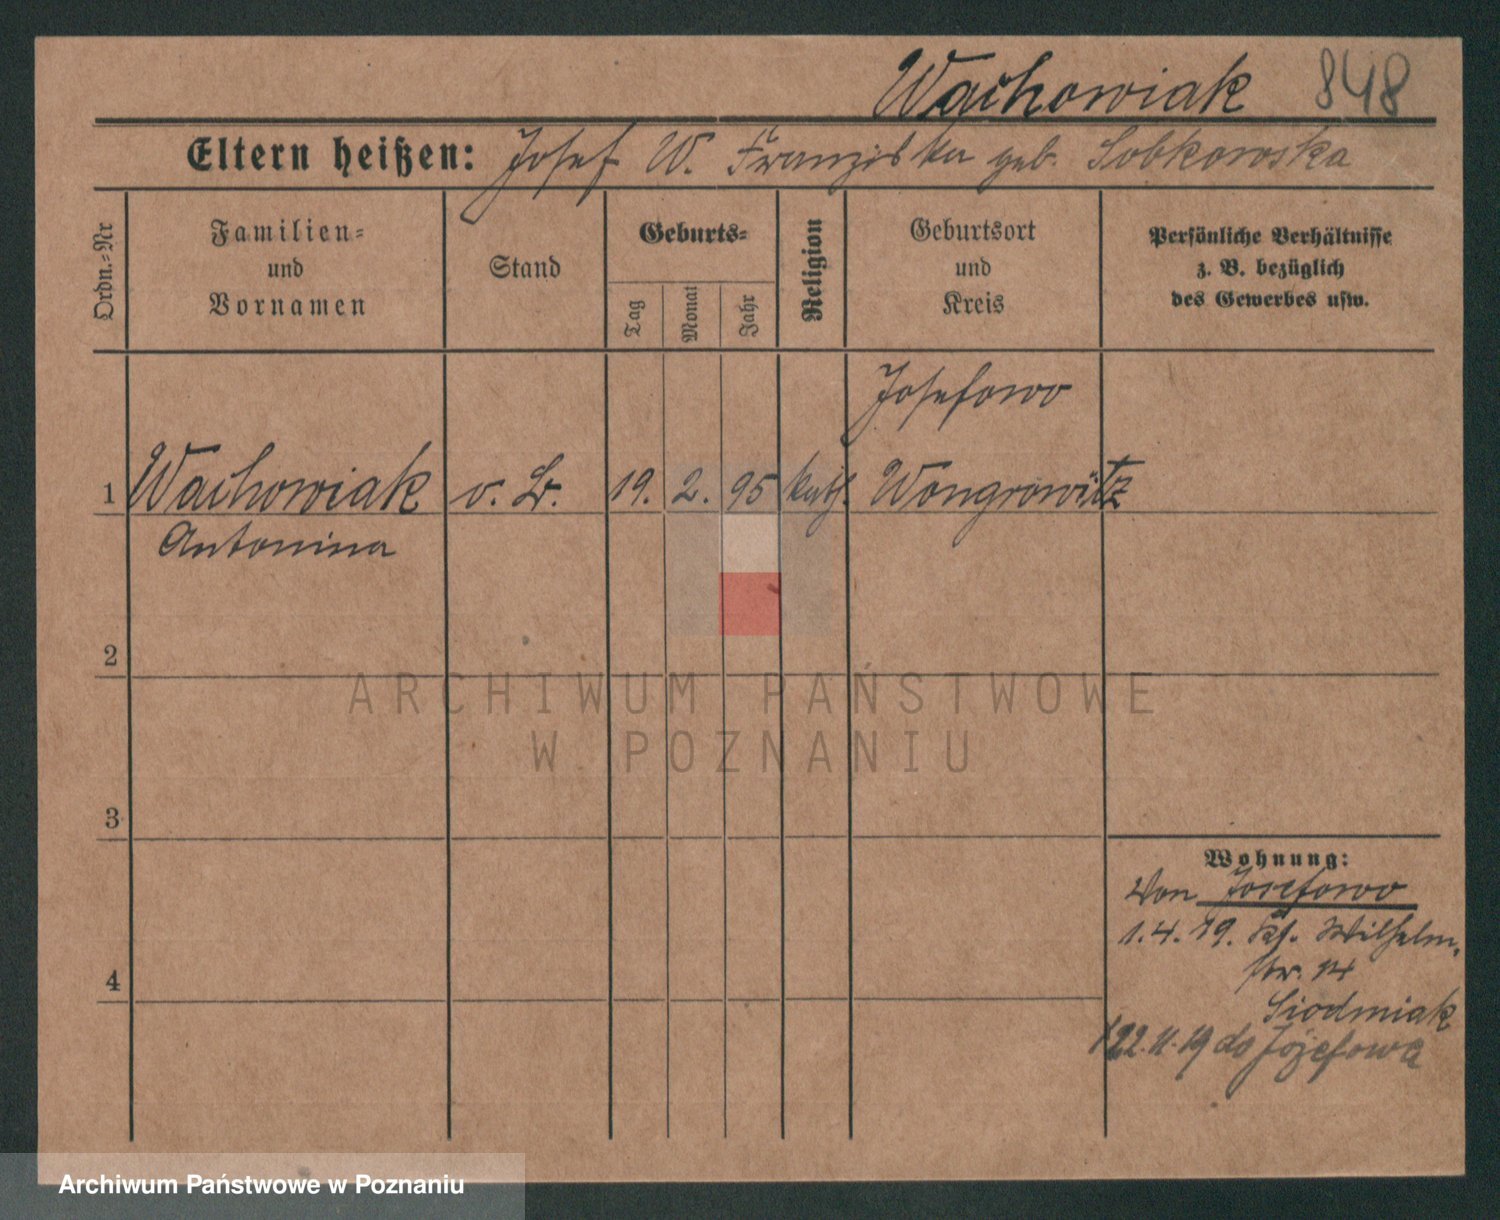 Wachowiak 848
Eltern heißen: Josef W. Franziska geb. Sobkowska
Ordn.-Nr
Familien-
und
Vornamen
Stand
Geburts-
Tag
Monat
Jahr
Religion
Geburtsort
und
Kreis
Persönliche Verhältnisse
z. B. bezüglich
des Gewerbes usw.
Josefowo
1 Wachowiak 19. 2. 95 kath. Wongrowitz
Antonina
2
3
4
Wohnung:
Von Josefowo
1.4.19. Wilhelm-
str. 14
Siodmiak
22.11.19 do Józefowa
ARCHIWUM PAŃSTWOWE
W POZNANIU
Archiwum Państwowe w Poznaniu